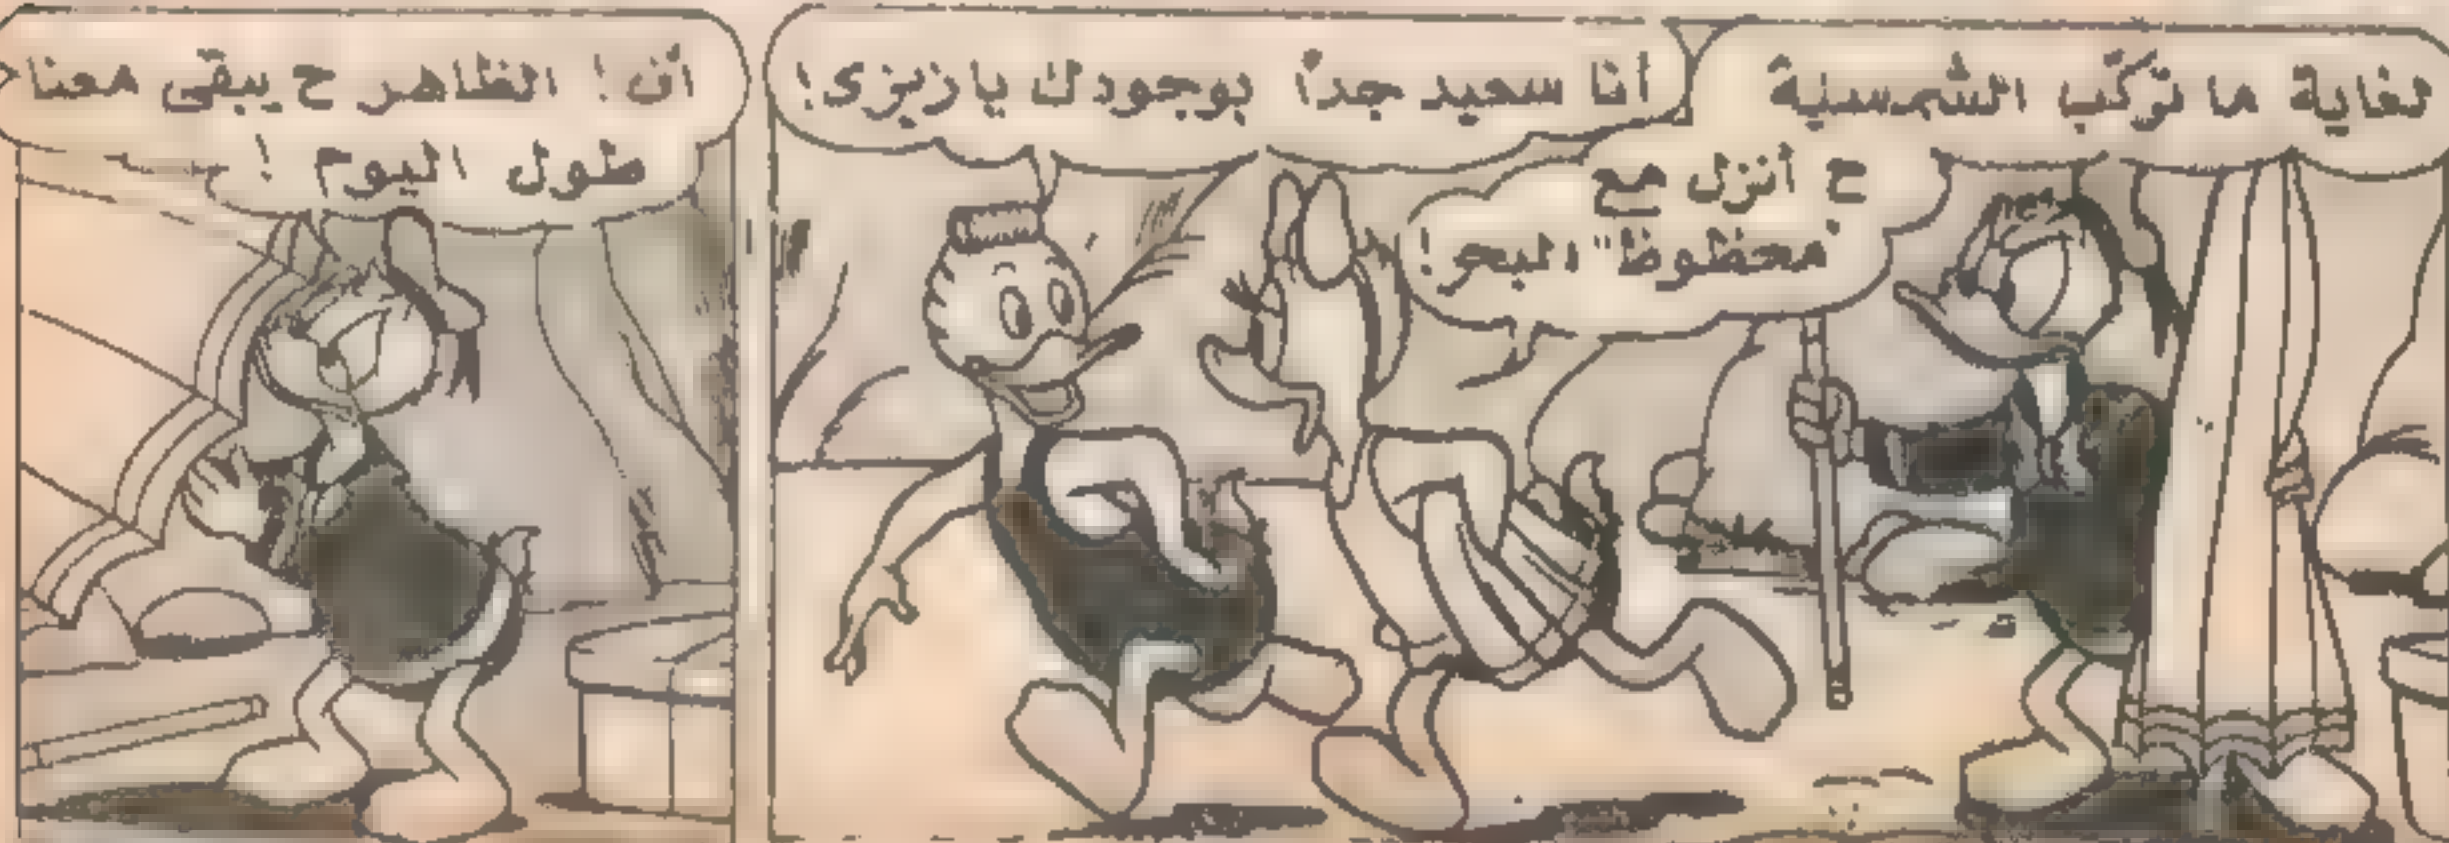 لغاية ما تركّب الشمسية
ح أنزل مع
"محظوظ" البحر!
أنا سعيد جداً بوجودك يا زيزى!
أف! الظاهر ح يبقى معنا
طول اليوم!